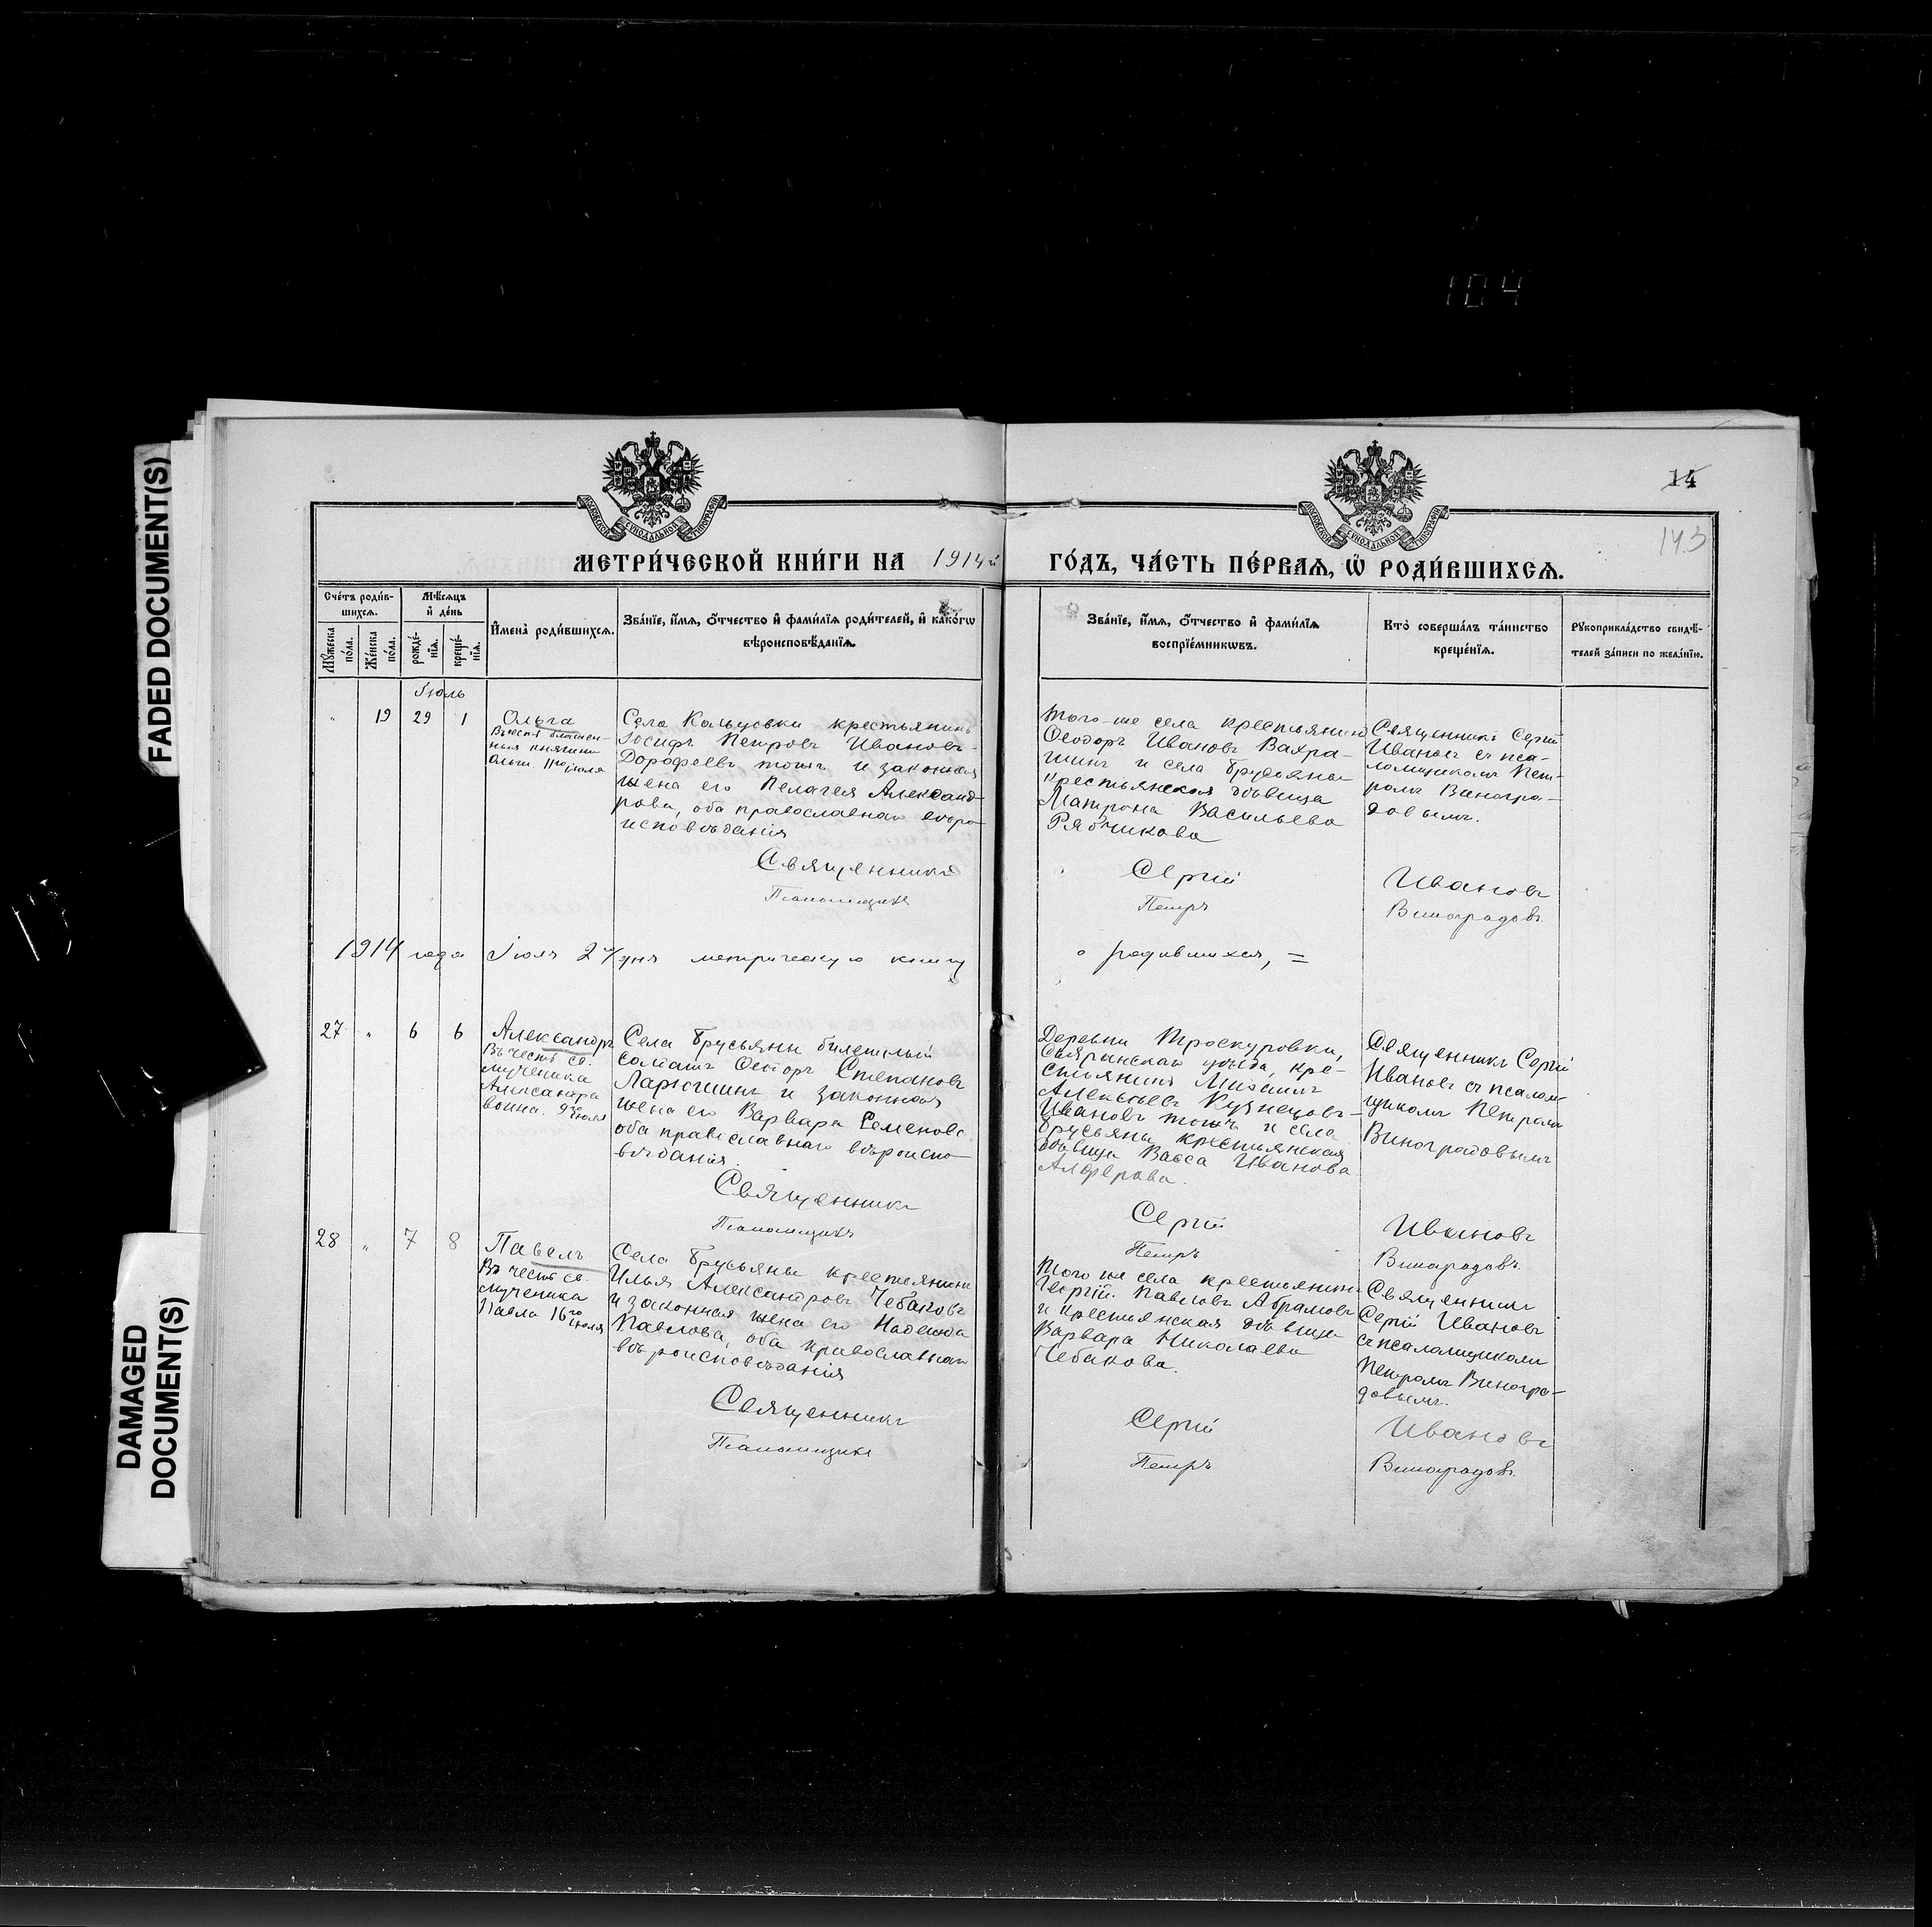 104
FADED DOCUMENT(S)
DAMAGED
DOCUMENT(S)
14
143
МЕТРИ́ЧЕСКОЙ КНИ́ГИ НА 1914й ГО́ДЪ, ЧА́СТЬ ПЕ́РВАѦ, Ѡ҆ РОДИ́ВШИХСѦ.
Сче́тъ роди́в-
шихсѧ.
Мꙋ́жеска
по́ла.
Же́нска
по́ла.
Мѣ́сѧцъ
и҆ де́нь
рожде́-
нїѧ.
креще́-
нїѧ.
И҆мена̀ роди́вшихсѧ.
Зва́нїе, и҆́мѧ, ѻ҆́тчество и҆ фами́лїѧ роди́телей, и҆ како́гѡ
вѣроисповѣ́данїѧ.
Зва́нїе, и҆́мѧ, ѻ҆́тчество и҆ фами́лїѧ
воспрїе́мникѡвъ.
Кто̀ соверша́лъ та́инство
креще́нїѧ.
Рꙋкоприкла́дство свидѣ́-
телей за́писи по жела́нїю.
Іюль
" 19 29 1
Ольга
Въ честь блажен-
ныя княгини
Ольги. 11го іюля
Села Кольцовки крестьянинъ
Іосифъ Петровъ Ивановъ-
Дорофеевъ тожъ и законная
жена его Пелагея Александ-
рова, оба православнаго вѣро-
исповѣданія
Того-же села крестьянинъ
Ѳеодоръ Ивановъ Вахра-
шинъ и села Брусьяны
крестьянская дѣвица
Матрона Васильева
Рябчикова
Священникъ Сергій
Ивановъ съ пса-
ломщикомъ Пет-
ромъ Виногра-
довымъ.
Священникъ Сергій Ивановъ
Псаломщикъ Петръ Виноградовъ.
1914 года Іюля 2го дня метрическую книгу о родившихся, =
27 " 6 6
Александръ
Въ честь св.
мученика
Александра
воина. 9го іюля
Села Брусьяны билетный
солдатъ Ѳеодоръ Степановъ
Ларюшинъ и законная
жена его Варвара Семенова,
оба православнаго вѣроиспо-
вѣданія.
Деревни Троекуровки,
Сызранскаго уѣзда, кре-
стьянинъ Михаилъ
Алексѣевъ Кузнецовъ-
Ивановъ тожъ и села
Брусьяны крестьянская
дѣвица Васса Иванова
Алферова.
Священникъ Сергій
Ивановъ съ псалом-
щикомъ Петромъ
Виноградовымъ
Священникъ Сергій Ивановъ
Псаломщикъ Петръ Виноградовъ.
28 " 7 8
Павелъ
Въ честь св.
мученика
Павла 16го іюля
Села Брусьяны крестьянинъ
Илья Александровъ Чебаковъ
и законная жена его Надежда
Павлова, оба православнаго
вѣроисповѣданія
Того же села крестьянинъ
Георгій Павловъ Абрамовъ
и крестьянская дѣвица
Варвара Николаева
Чебакова.
Священникъ
Сергій Ивановъ
съ псаломщикомъ
Петромъ Виногра-
довымъ.
Священникъ Сергій Ивановъ
Псаломщикъ Петръ Виноградовъ.